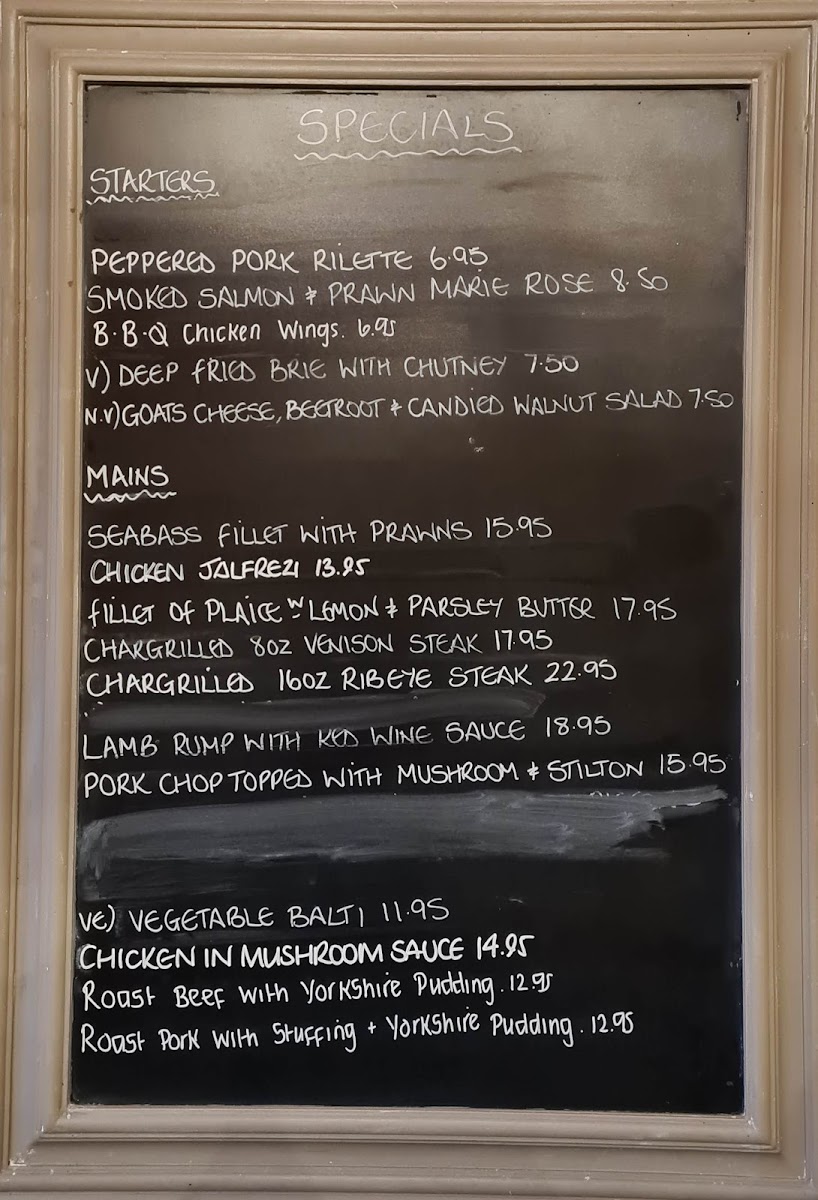 SPECIALS
STARTERS
PEPPERED PORK RILETTE 6.95
SMOKED SALMON & PRAWN MARIE ROSE 8.50
B.B.Q Chicken Wings. 6.95
V) DEEP FRIED BRIE WITH CHUTNEY 7.50
N.V) GOATS CHEESE, BEETROOT & CANDIED WALNUT SALAD 7.50
MAINS
SEABASS FILLET WITH PRAWNS 15.95
CHICKEN JALFREZI 13.95
FILLET OF PLAICE W LEMON & PARSLEY BUTTER 17.95
CHARGRILLED 8OZ VENISON STEAK 17.95
CHARGRILLED 16OZ RIBEYE STEAK 22.95
LAMB RUMP WITH RED WINE SAUCE 18.95
PORK CHOP TOPPED WITH MUSHROOM & STILTON 15.95
VE) VEGETABLE BALTI 11.95
CHICKEN IN MUSHROOM SAUCE 14.95
Roast Beef with Yorkshire Pudding. 12.95
Roast Pork with Stuffing + Yorkshire Pudding. 12.95